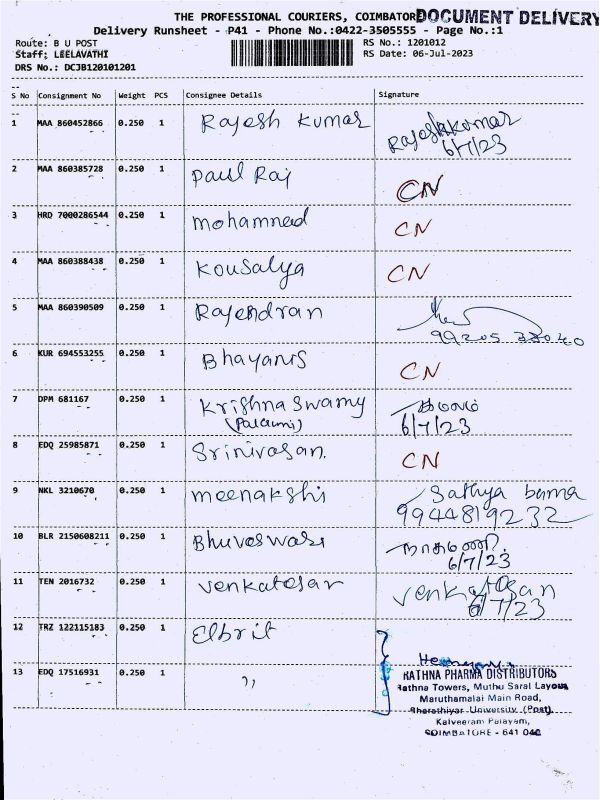 THE PROFESSIONAL COURIERS, COIMBATORE
DOCUMENT DELIVERY
Delivery Runsheet - P41 - Phone No.:0422-3505555 - Page No.:1
Route: B U POST
RS No.: 1201012
Staff; LEELAVATHI
RS Date: 06-Jul-2023
DRS No.: DCJB120101201
S No Consignment No Weight PCS Consignee Details Signature
1 MAA 860452866 0.250 1 Rajesh Kumar Rajeshkumar
6/7/23
2 MAA 860385728 0.250 1 Paul Raj CN
3 HRD 7000286544 0.250 1 mohamned CN
4 MAA 860388438 0.250 1 Kousalya CN
5 MAA 860390509 0.250 1 Rajendran
99205 33040
6 KUR 694553255 0.250 1 Bhayanis CN
7 DPM 681167 0.250 1 Krishna Swamy
(Palani) 6/7/23
8 EDQ 25985871 0.250 1 Srinivasan. CN
9 NKL 3210670 0.250 1 meenakshi Sathya bama
9944819232
10 BLR 2150608211 0.250 1 Bhuveswari நாகமணி.
6/7/23
11 TEN 2016732 0.250 1 Venkatesan Venkatesan
6/7/23
12 TRZ 122115183 0.250 1 Elbrit
13 EDQ 17516931 0.250 1 ,,
RATHNA PHARMA DISTRIBUTORS
Rathna Towers, Muthu Saral Layout
Maruthamalai Main Road,
Bharathiyar University (Post)
Kalveeram Palayam,
COIMBATORE - 641 046